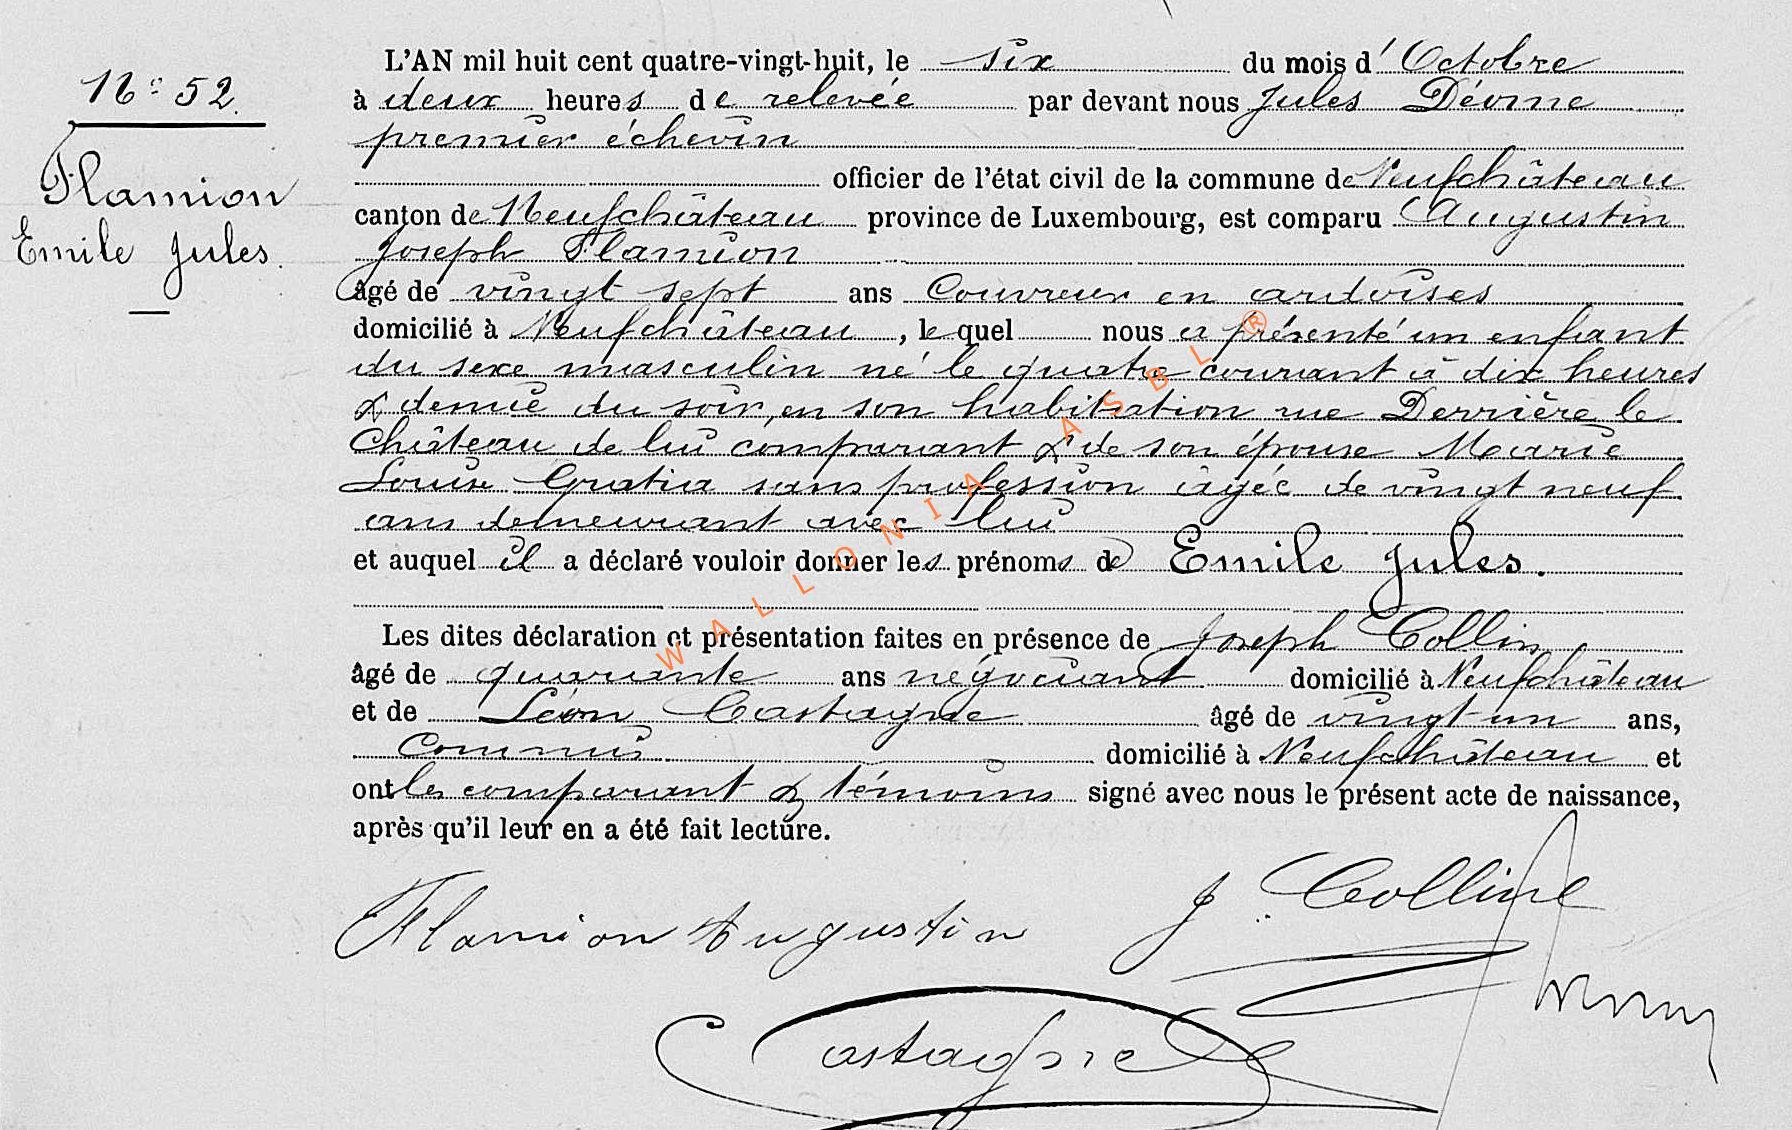 N° 52.
Flamion
Emile Jules.
L'AN mil huit cent quatre-vingt-huit, le six du mois d'Octobre
à deux heures de relevée par devant nous Jules Déome
premier échevin
officier de l'état civil de la commune de Neufchâteau
canton de Neufchâteau province de Luxembourg, est comparu Augustin
Joseph Flamion
âgé de vingt sept ans Couvreur en ardoises
domicilié à Neufchâteau, lequel nous a présenté un enfant
du sexe masculin né le quatre courant à dix heures
& demie du soir, en son habitation rue Derrière le
Château de lui comparant & de son épouse Marie
Louise Gratia sans profession âgée de vingt neuf
ans demeurant avec lui
et auquel il a déclaré vouloir donner les prénoms de Emile Jules.
Les dites déclaration et présentation faites en présence de Joseph Collin
âgé de quarante ans négociant domicilié à Neufchâteau
et de Léon Castagne âgé de vingt un ans,
Commis domicilié à Neufchâteau et
ont les comparant & témoins signé avec nous le présent acte de naissance,
après qu'il leur en a été fait lecture.
Flamion Augustin
J. Colline
Castagne
WALLONIA ASBL ®